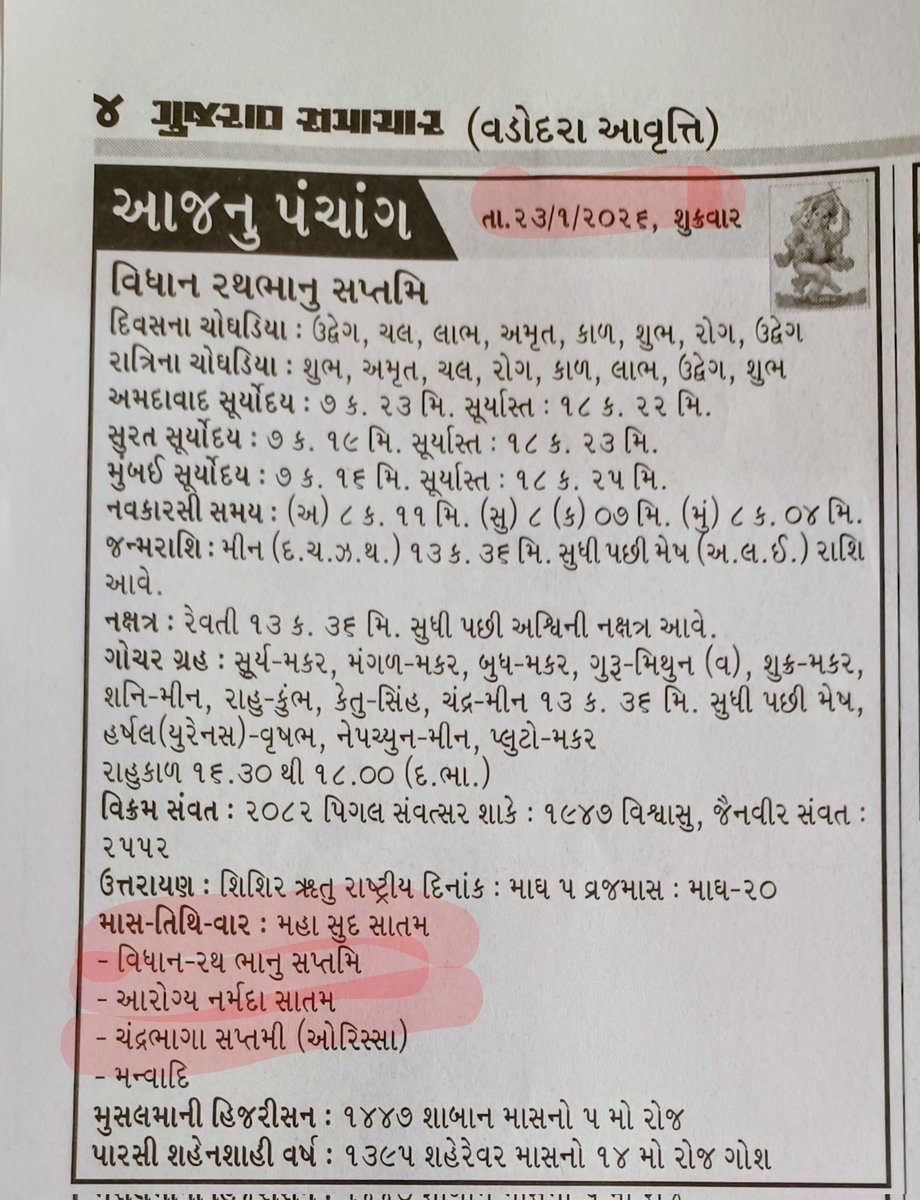 ૪ ગુજરાત સમાચાર (વડોદરા આવૃત્તિ)
આજનુ પંચાંગ
તા.૨૩/૧/૨૦૨૬, શુક્રવાર
વિધાન રથભાનુ સપ્તમિ
દિવસના ચોઘડિયા : ઉદ્વેગ, ચલ, લાભ, અમૃત, કાળ, શુભ, રોગ, ઉદ્વેગ
રાત્રિના ચોઘડિયા : શુભ, અમૃત, ચલ, રોગ, કાળ, લાભ, ઉદ્વેગ, શુભ
અમદાવાદ સૂર્યોદય : ૭ ક. ૨૩ મિ. સૂર્યાસ્ત : ૧૮ ક. ૨૨ મિ.
સુરત સૂર્યોદય : ૭ ક. ૧૯ મિ. સૂર્યાસ્ત : ૧૮ ક. ૨૩ મિ.
મુંબઈ સૂર્યોદય : ૭ ક. ૧૬ મિ. સૂર્યાસ્ત : ૧૮ ક. ૨૫ મિ.
નવકારસી સમય : (અ) ૮ ક. ૧૧ મિ. (સુ) ૮ (ક) ૦૭ મિ. (મું) ૮ ક. ૦૪ મિ.
જન્મરાશિ : મીન (દ.ચ.ઝ.થ.) ૧૩ ક. ૩૬ મિ. સુધી પછી મેષ (અ.લ.ઈ.) રાશિ
આવે.
નક્ષત્ર : રેવતી ૧૩ ક. ૩૬ મિ. સુધી પછી અશ્વિની નક્ષત્ર આવે.
ગોચર ગ્રહ : સૂર્ય-મકર, મંગળ-મકર, બુધ-મકર, ગુરૂ-મિથુન (વ), શુક્ર-મકર,
શનિ-મીન, રાહુ-કુંભ, કેતુ-સિંહ, ચંદ્ર-મીન ૧૩ ક. ૩૬ મિ. સુધી પછી મેષ,
હર્ષલ(યુરેનસ)-વૃષભ, નેપચ્યુન-મીન, પ્લુટો-મકર
રાહુકાળ ૧૬.૩૦ થી ૧૮.૦૦ (દ.ભા.)
વિક્રમ સંવત : ૨૦૮૨ પિગલ સંવત્સર શાકે : ૧૯૪૭ વિશ્વાસુ, જૈનવીર સંવત :
૨૫૫૨
ઉત્તરાયણ : શિશિર ઋતુ રાષ્ટ્રીય દિનાંક : માઘ ૫ વ્રજમાસ : માઘ-૨૦
માસ-તિથિ-વાર : મહા સુદ સાતમ
- વિધાન-રથ ભાનુ સપ્તમિ
- આરોગ્ય નર્મદા સાતમ
- ચંદ્રભાગા સપ્તમી (ઓરિસ્સા)
- મન્વાદિ
મુસલમાની હિજરીસન : ૧૪૪૭ શાબાન માસનો ૫ મો રોજ
પારસી શહેનશાહી વર્ષ : ૧૩૯૫ શહેરેવર માસનો ૧૪ મો રોજ ગોશ